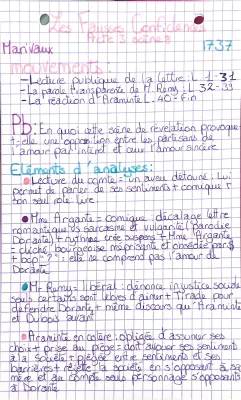 Les Fausses Confidences
Acte 3 scène 8
Marivaux 1737
mouvements:
- Lecture publique de la lettre: L 1-31
- La parole transparente de M. Remy: L 32-39
- La réaction d'Araminte L. 40-Fin
Pb: En quoi cette scène de révélation provoque
t-elle une opposition entre les partisans de
l'amour par intérêt et ceux l'amour sincère
Eléments d'analyses:
Lecture du comte = un aveu détourné: lui
permet de parler de ses sentiments + comique
son seul rôle lire
Mme Argante = comique décalage lettre
romantique vs sarcasme et vulgarité (parodie
Dorante) + rythme crée suspens + Mme Argante
= cliché bourgeoise méprisante et obsédée par
+ bop: "?": elle ne comprend pas l'amour de
Dorante
Mr Remy = libéral: dénonce injustice sociale
seuls certains sont libres d'aimer + Tirade pour
défendre Dorante + même discours qu'Araminte
et Dubois avant
Araminte en colère: obligée d'assumer ses
choix + prise au piège = doit avouer ses sentiment
à la société + piégée entre sentiments et ses
barrières + rejette la société en s'opposant à sa
mère et au compte seule personnage s'opposants
à Dorante